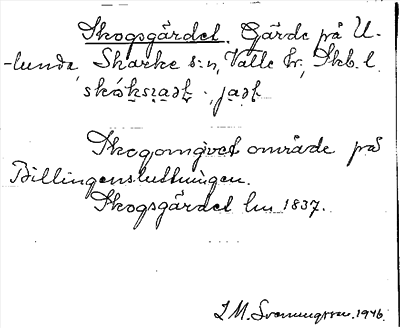 Skogsgärdet. Gärde på U-
-lunda, Skarke s:n, Valle hr, Skb. l.
Skogomgivet område på
Billingensluttningen.
Skogsgärdet lm 1837.
I. M. Svenungsson. 1946.